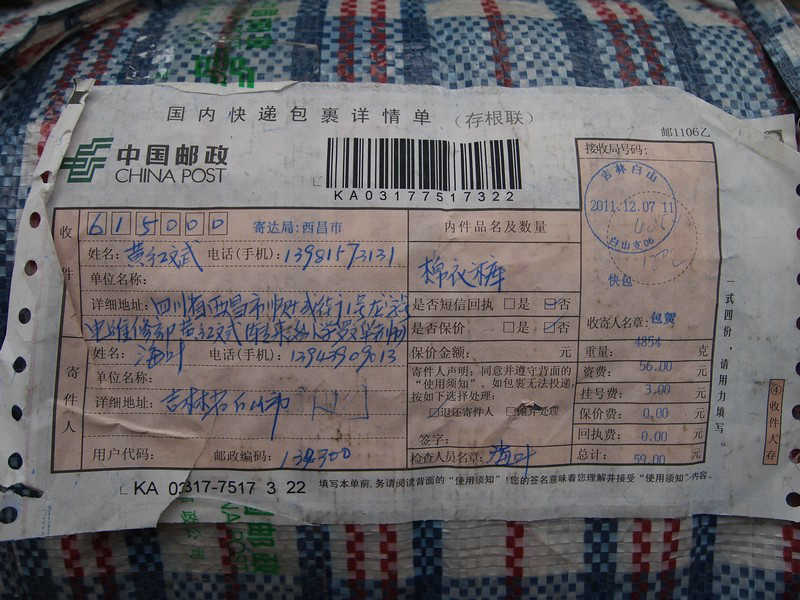 国内快递包裹详情单（存根联）
邮1106乙
中国邮政
CHINA POST
KA03177517322
接收局号码：
吉林白山
2011.12.07 11
白山支06
快包
收件人
615000
寄达局：西昌市
姓名：黄红斌 电话(手机)：
单位名称：
详细地址：四川省西昌市
内件品名及数量
棉衣裤
是否短信回执 □是 □否
是否保价 □是 □否
保价金额： 元
收寄人名章：包贺
寄件人
姓名：海叶 电话(手机)：
单位名称：
详细地址：吉林省白山市
用户代码： 邮政编码：134300
寄件人声明：同意并遵守背面的
“使用须知”，如包裹无法投递，
按如下选择处理：
□退还寄件人 □抛弃处理
签字：
检查人员名章：海叶
重量： 4854 克
资费： 56.00 元
挂号费： 3.00 元
保价费： 0.00 元
回执费： 0.00 元
总计： 59.00 元
一式四份，请用力填写。
④收件人存
KA 0317-7517 3 22
填写本单前，务请阅读背面的“使用须知”！您的签名意味着您理解并接受“使用须知”内容。